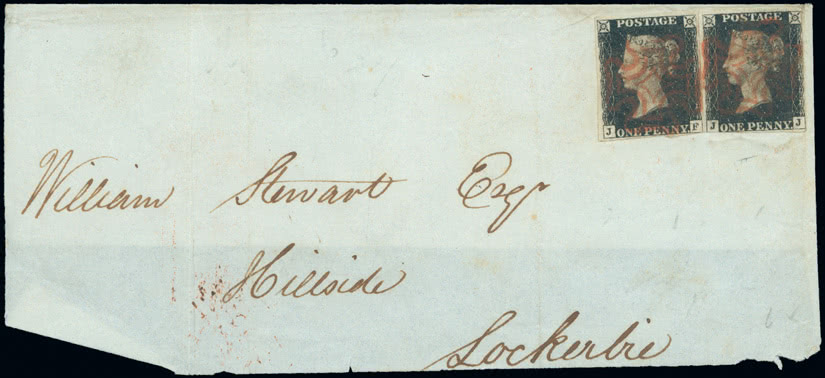 POSTAGE POSTAGE
J F J J
ONE PENNY ONE PENNY
William Stewart Esqr
Hillside
Lockerbie